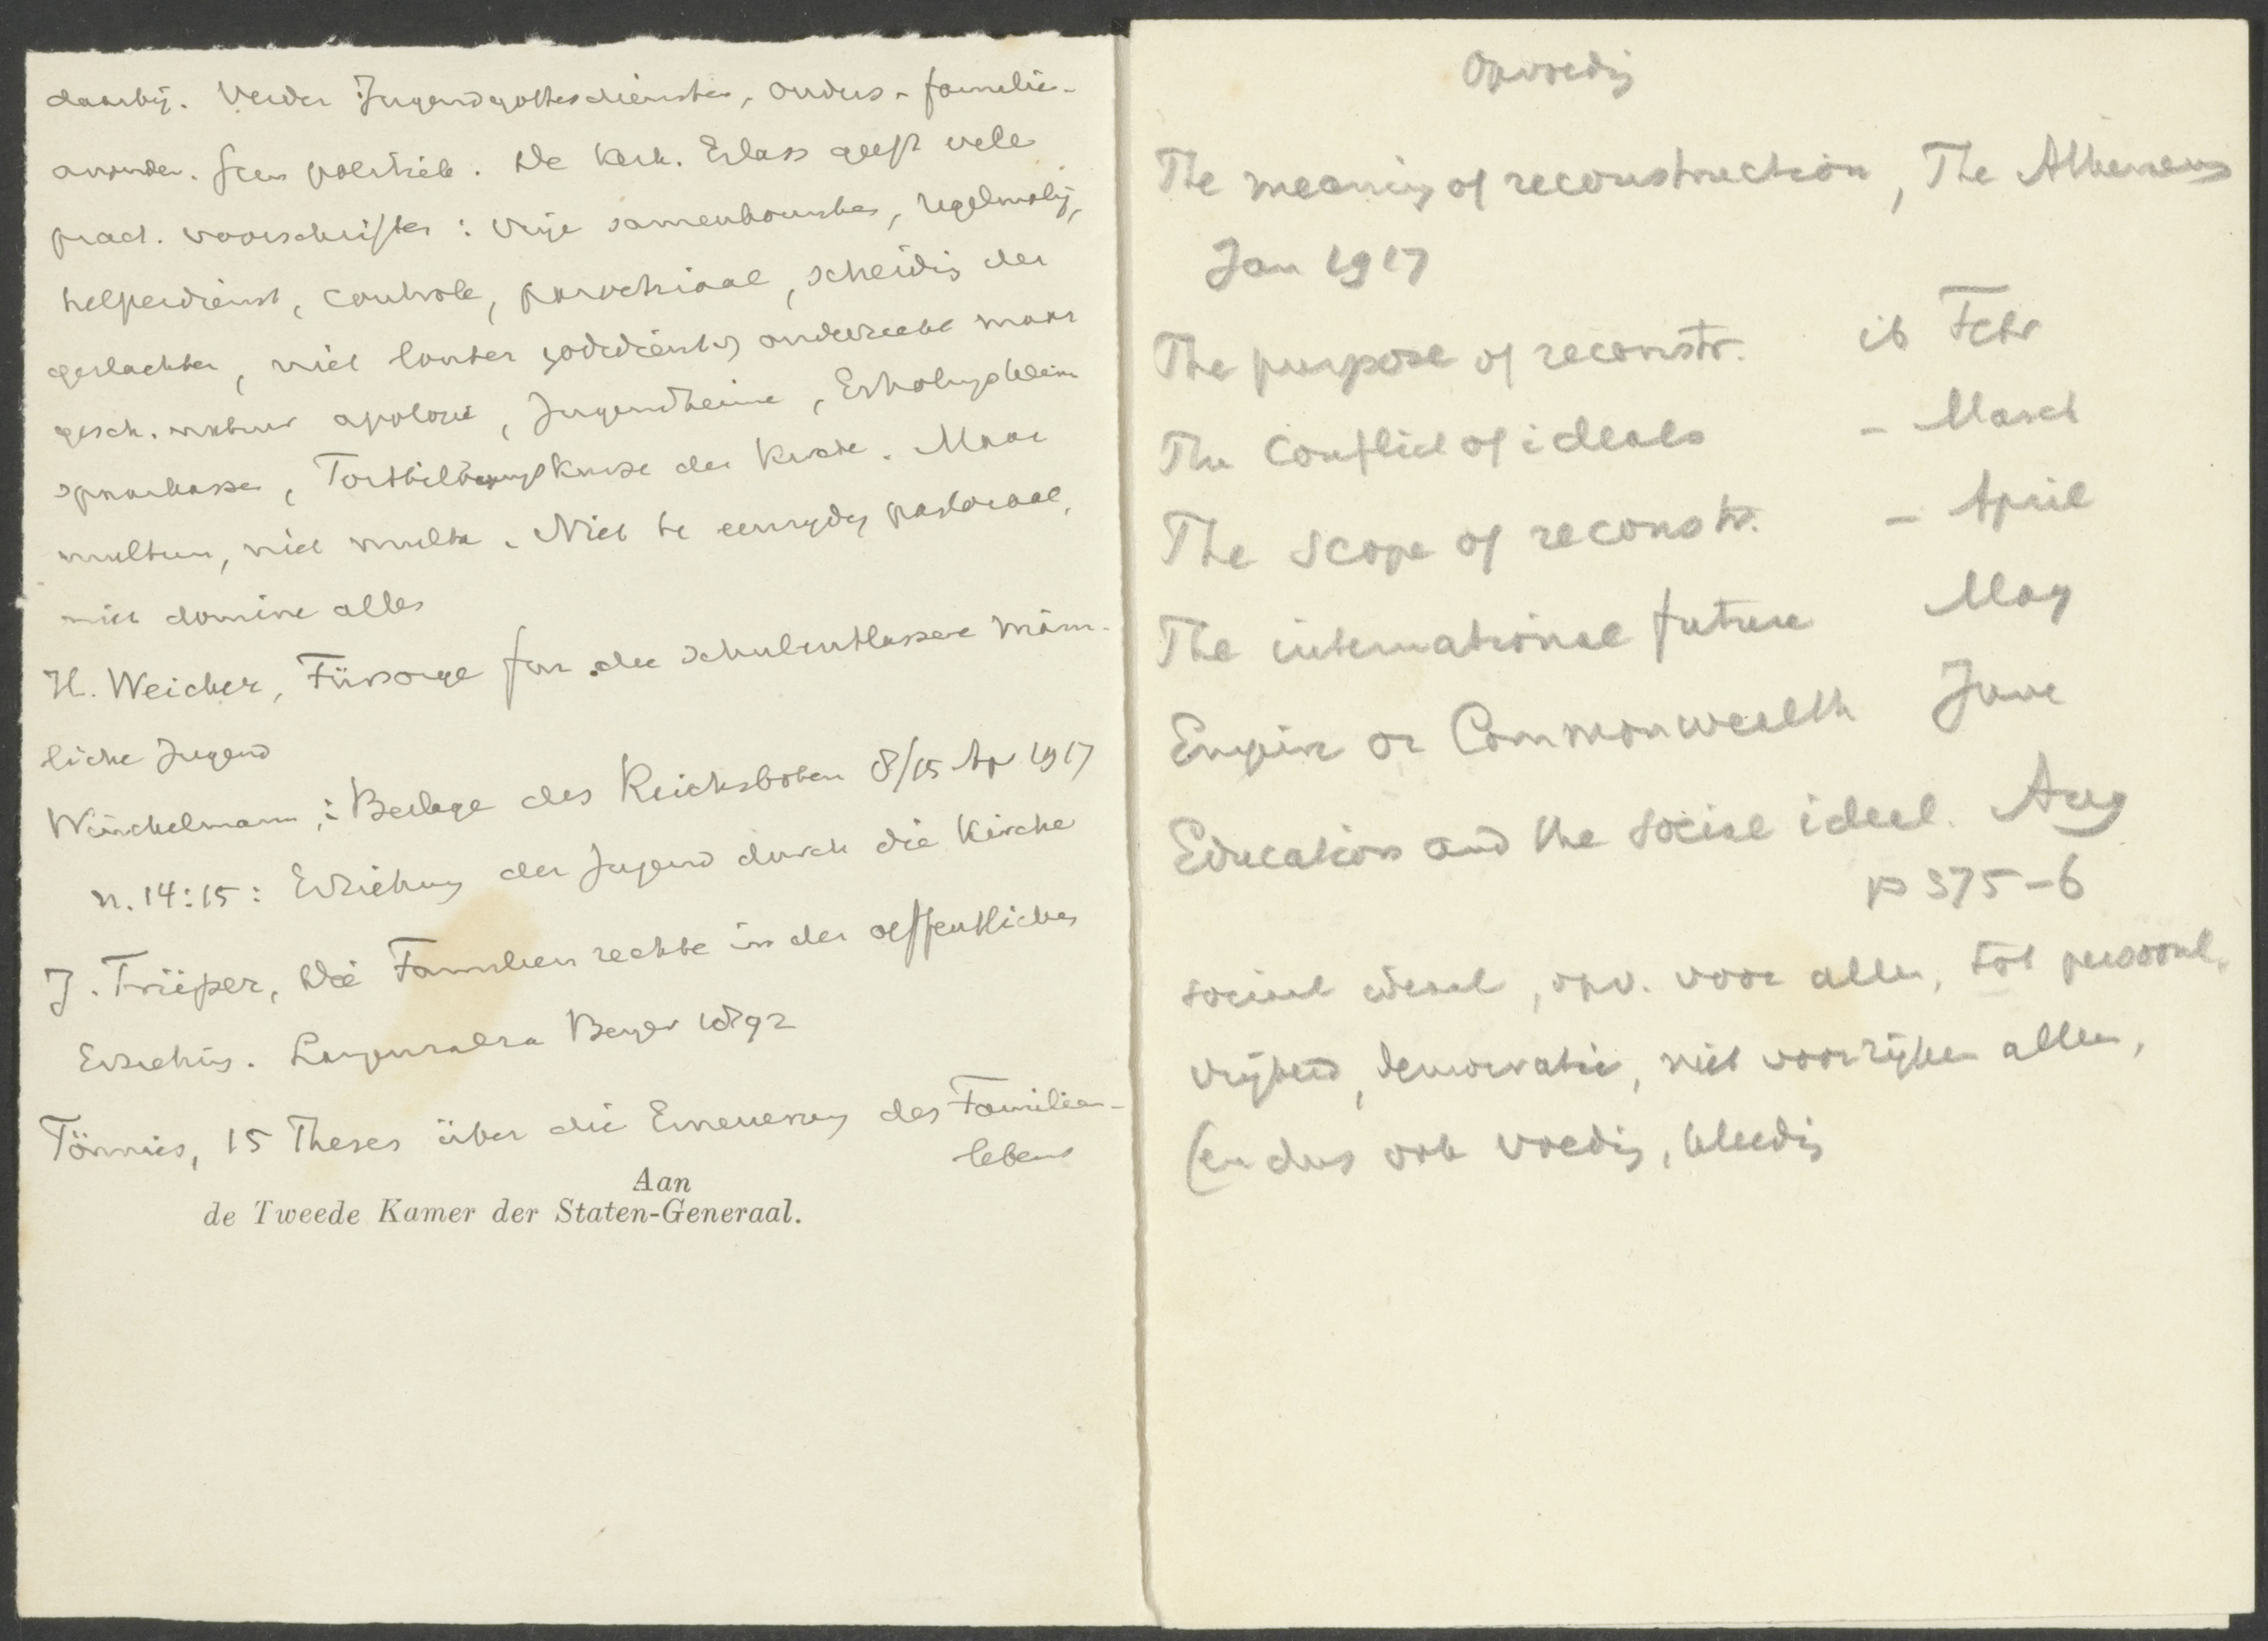 daarbij. Verder Jugendgottesdiensten, ouders- familie-
avonden. Geen politiek. De kerk. Erlass geeft vele
pract. voorschriften: vrije samenkomsten, regelmatig,
helperdienst, controle, parochiaal, scheidig der
geslachten, niet louter godsdienstig onderricht maar
gesch. natuur apologie, Jugendheime, Erholungsheim
sparkasse, Fortbildungskurse der Kirche. Maar
multum, niet multa. Niet te eenzydig pastoraal,
niet domine alles
H. Weicker, Fürsorge für die schulentlassene männ-
liche Jugend
Winckelmann,: Beilage des Reichsboten 8/15 Ap 1917
n. 14:15: Erziehung der Jugend durch die Kirche
J. Trüper, Die Familienrechte in der oeffentlichen
Erziehung. Langensalza Beyer 1892
Tönnies, 15 Thesen über die Erneuerung des Familien-
lebens
Aan
de Tweede Kamer der Staten-Generaal.
Opvoedig
The meaning of reconstruction, The Athenaeum
Jan 1917
The purpose of reconstr. ib Febr
The Conflict of ideals - March
The scope of reconstr. - April
The international future May
Empire or Commonwealth June
Education and the social ideal. Aug
p 375-6
sociaal ideaal, opv. voor allen, tot persoonl.
vrijheid, democratie, niet voor rijken alleen,
(en dus ook voedig, kleedig